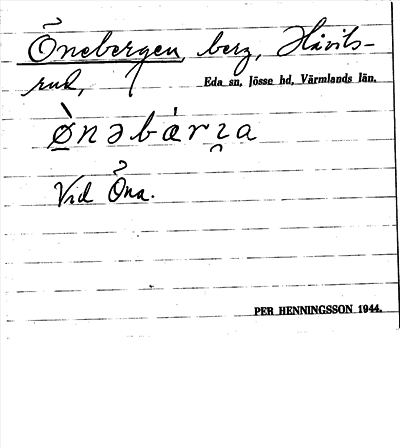 Önebergen, berg, Håvils-
rud,
Eda sn, Jösse hd, Värmlands län.
Vid Öna.
PER HENNINGSSON 1944.